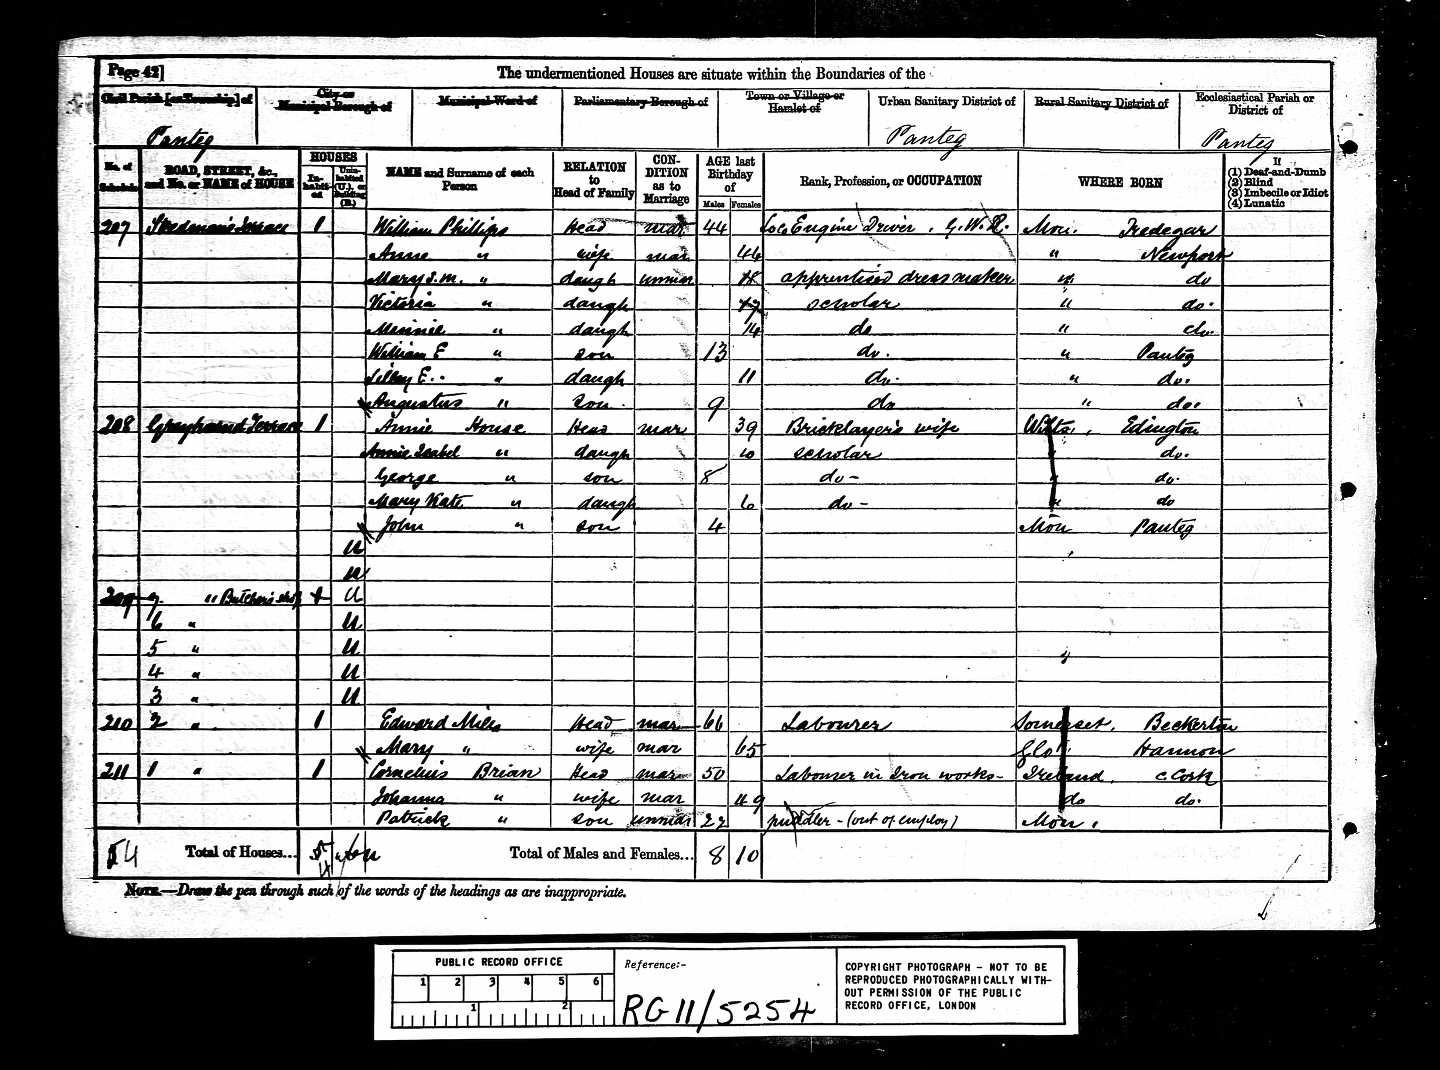 Page 42]
The undermentioned Houses are situate within the Boundaries of the
Civil Parish [or Township] of City or Municipal Borough of Municipal Ward of Parliamentary Borough of Town or Village or Hamlet of Urban Sanitary District of Rural Sanitary District of Ecclesiastical Parish or District of
Panteg Panteg Panteg
No. of Schedule ROAD, STREET, &c., and No. or NAME of HOUSE HOUSES In-habit-ed Unin-habited (U.), or Building (B.) NAME and Surname of each Person RELATION to Head of Family CON-DITION as to Marriage AGE last Birthday of Males Females Rank, Profession, or OCCUPATION WHERE BORN If (1) Deaf-and-Dumb (2) Blind (3) Imbecile or Idiot (4) Lunatic
207 Terrace 1 William Phillips Head mar 44 Loco Engine Driver . G.W.R. Mon. Tredegar
Anne " wife mar 44 " Newport
Mary S.M. " daugh unmar apprentised dress maker " do
Victoria " daugh 17 scholar " do.
Minnie " daugh 14 do " do.
William E " son 13 do. " Panteg
E. " daugh 11 do. " do.
Augustus " son. 9 do " do.
208 Greyhound Terrace 1 Annie House Head mar 39 Bricklayer's wife Wilts, Edington
Annie Isabel " daugh 10 scholar " do.
George " son 8 do - " do.
Mary Kate " daugh 6 do - " do
John " son 4 Mon Panteg
U
U
209 7. " Butcher's shop 1 U
6 " U
5 " U
4 " U
3 " U
210 2 " 1 Edward Miles Head mar 66 Labourer Somerset, Beckerton
Mary " wife mar 65 Glo. Hannon
211 1 " 1 Cornelius Brian Head mar 50 Labourer in Iron works - Ireland, C. Cork
Johanna " wife mar 49 do do.
Patrick " son unmar 22 puddler - (out of employ) Mon.
4 Total of Houses... 4 6u Total of Males and Females... 8 10
NOTE.—Draw the pen through such of the words of the headings as are inappropriate.
PUBLIC RECORD OFFICE
1 2 3 4 5 6
1 2
Reference:-
RG 11/5254
COPYRIGHT PHOTOGRAPH - NOT TO BE
REPRODUCED PHOTOGRAPHICALLY WITH-
OUT PERMISSION OF THE PUBLIC
RECORD OFFICE, LONDON